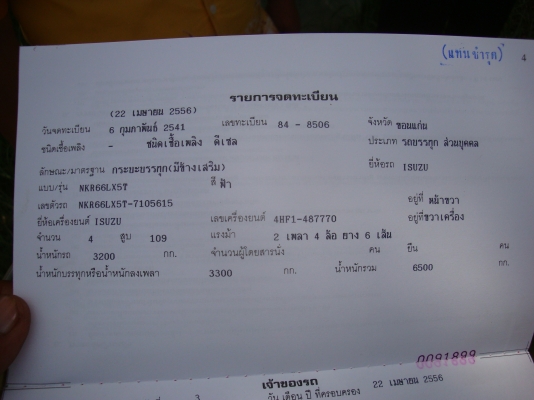 (แทนชำรุด) 4
รายการจดทะเบียน
(22 เมษายน 2556)
วันจดทะเบียน 6 กุมภาพันธ์ 2541 เลขทะเบียน 84 - 8506 จังหวัด ขอนแก่น
ชนิดเชื้อเพลิง - ชนิดเชื้อเพลิง ดีเซล ประเภท รถบรรทุก ส่วนบุคคล
ลักษณะ/มาตรฐาน กระบะบรรทุก(มีข้างเสริม) ยี่ห้อรถ ISUZU
แบบ/รุ่น NKR66LX5T สี ฟ้า
เลขตัวรถ NKR66LX5T-7105615 อยู่ที่ หน้าขวา
ยี่ห้อเครื่องยนต์ ISUZU เลขเครื่องยนต์ 4HF1-487770 อยู่ที่ ขวาเครื่อง
จำนวน 4 สูบ 109 แรงม้า 2 เพลา 4 ล้อ ยาง 6 เส้น
น้ำหนักรถ 3200 กก. จำนวนผู้โดยสารนั่ง คน ยืน คน
น้ำหนักบรรทุกหรือน้ำหนักลงเพลา 3300 กก. น้ำหนักรวม 6500 กก.
0091889
เจ้าของรถ
3 วัน เดือน ปี ที่ครอบครอง 22 เมษายน 2556